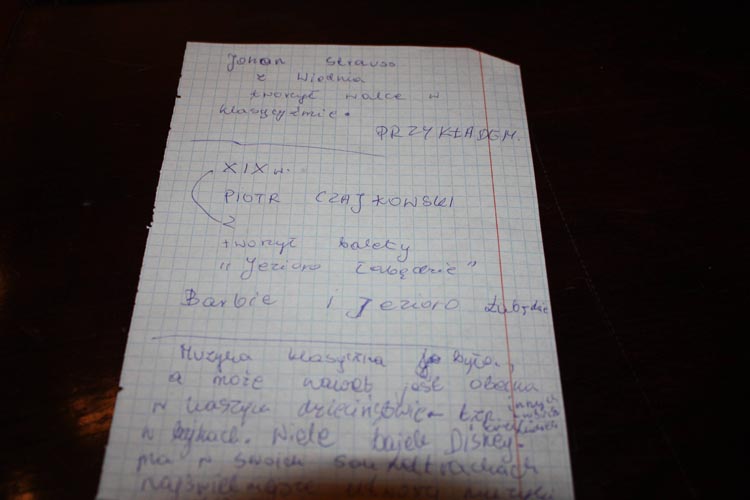 Johan Strauss
z Wiednia
tworzył walce w
klasycyzmie.
PRZYKŁADEM.
XIX w.
PIOTR CZAJKOWSKI
2
tworzył balety
"Jezioro Łabędzie"
Barbie i Jezioro Łabędzie
Muzyka klasyczna była,
a może nawet jest obecna
w waszym dzieciństwie tzn. innych
w bajkach. Wiele bajek Disney-
ma w swoich soundtrackach